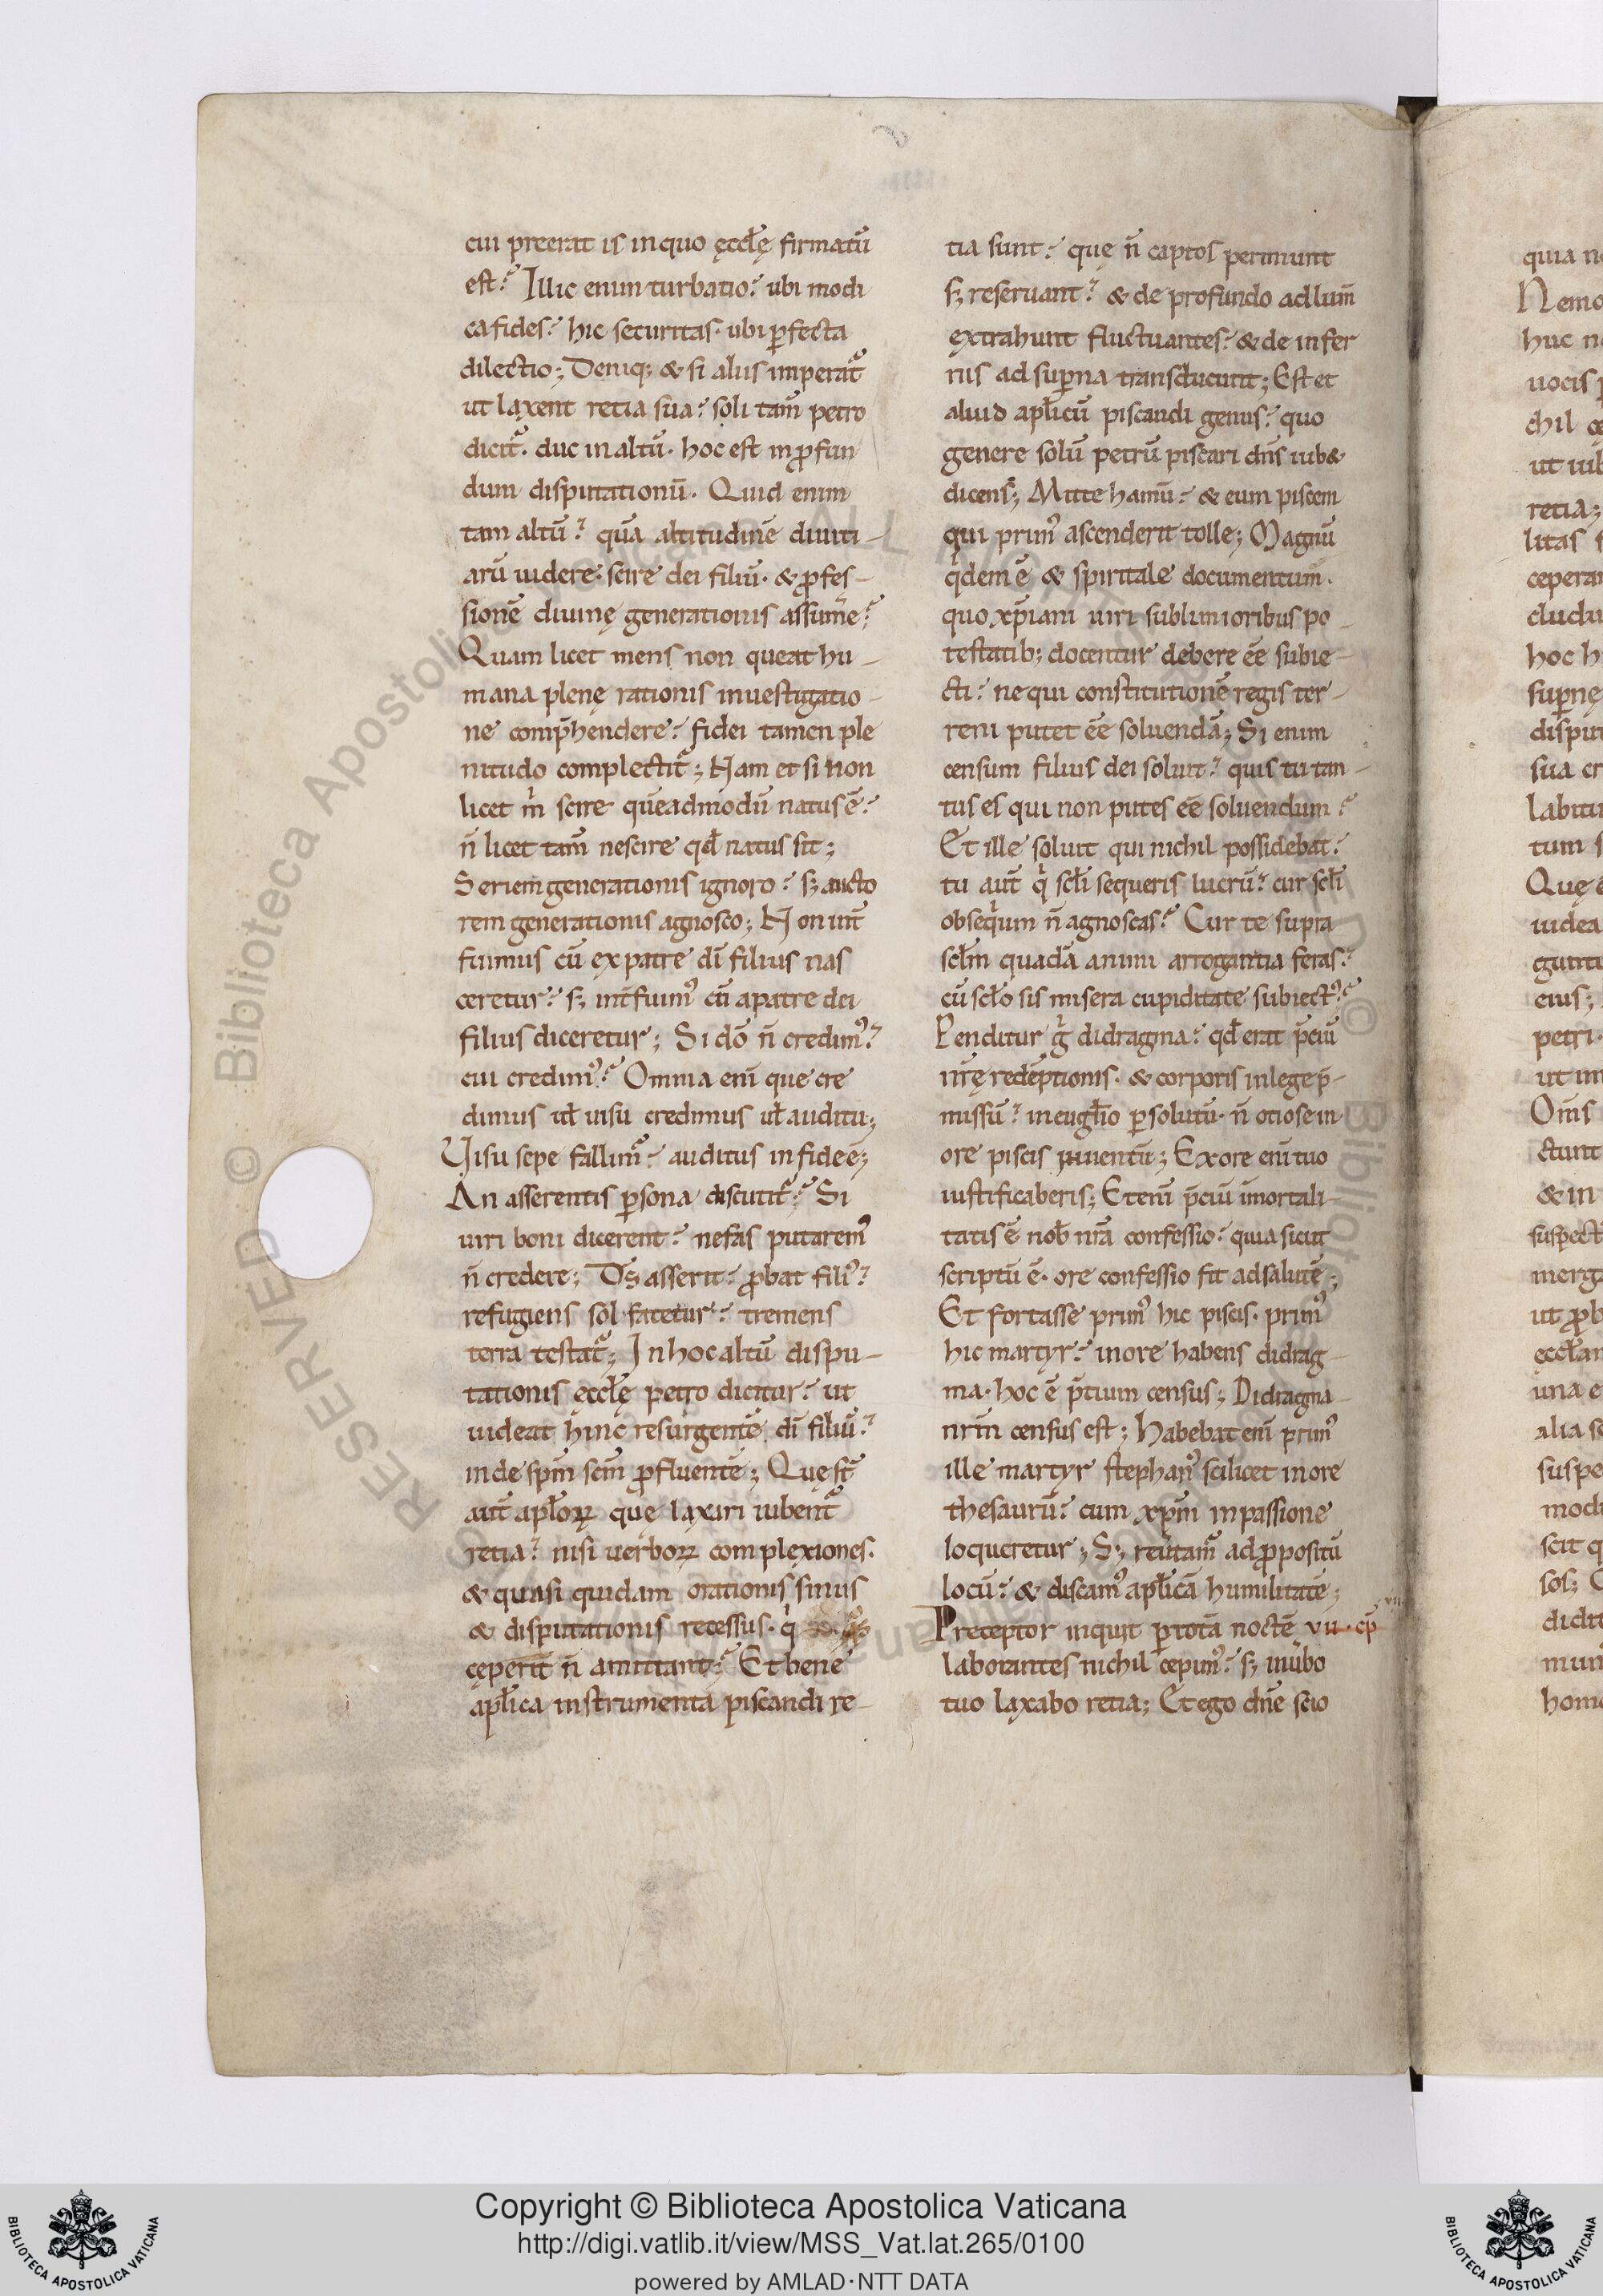 cui preerat is in quo ęcclę firmatū
est? Illic enim turbatio? ubi modi
ca fides? hic securitas· ubi ꝑfecta
dilectio; Deniq; & si aliis imperat᷑
ut laxent retia sua? soli tam̄ petro
dicit᷑· duc in altū· hoc est in ꝓfun
dum disputationū· Quid enim
tam altū? quā altitudinē diuiti-
arū uidere· scire dei filiū· & ꝓfes-
sionē diuinę generationis assumer̄e?
Quam licet mens non queat hu-
mana plenę rationis inuestigatio-
ne comp̄hendere? fidei tamen ple
nitudo complectit᷑; Nam et si non
licet m̄ scire quēadmodū natus ē?
n̄ licet tam̄ nescire qđ natus sit;
Seriem generationis ignoro? s; aucto
rem generationis agnosco; Non int̄
fuimus cū ex patre dī filius nas
ceretur? s; int̄fuim᷒ cū a patre dei
filius diceretur; Si dō n̄ credim᷒?
cui credim᷒? Omnia enī que cre
dimus ut̄ uisu credimus ut̄ auditu;
Uisu sepe fallim᷒? auditus in fide ē;
An asserentis ꝑsona discutit᷑? Si
uiri boni dicerent? nefas putarem᷒
n̄ credere; Ds̄ asserit? ꝓbat fili᷒?
refugiens sol fatetur? tremens
terra testat᷑; In hoc altū dispu-
tationis ęcclę petro dicitur? ut
uideat hinc resurgentē dī filiū?
inde sp̄m sc̄m ꝓfluentē; Quę st̄
aut̄ apłoꝝ que laxari iubent᷑
retia? nisi uerboꝝ complexiones·
& quasi quidam orationis sinus
& disputationis recessus· q̇ 
ceperit n̄ amittant? Et bene
apłica instrumenta piscandi re-
tia sunt? quę n̄ captos perimunt
s; reseruant? & de profundo ad lum̄
extrahunt fluctuantes? & de infer
nis ad suꝑna transducunt; Est et
aliud apłicū piscandi genus? quo
genere solū petrū piscari dn̄s iub&
dicens; Mitte hamū? & eum piscem
qui prim᷒ ascenderit tolle; Magnū
q̇dem ē & spiritale documentum·
quo xp̄iani uiri sublimioribus po-
testatib; docentur debere ēē subie-
cti? ne qui constitutionē regis ter-
reni putet ēē soluendā; Si enim
censum filius dei soluit? quis tu tan-
tus es qui non putes ēē soluendum?
Et ille soluit qui nichil possidebat?
tu aut̄ q̇ scłi sequeris lucrū? cur scłi
obseq̇um n̄ agnoscas? Cur te supra
scłm quadā animi arrogantia feras?
cū scło sis misera cupiditate subiect᷒?
Penditur g̊ didragma? qđ erat p̄ciū
nr̄ę redēptionis· & corporis in lege p̄-
missū? in euḡlio ꝑsolutū· n̄ otiose in
ore piscis inuentū; Ex ore enī tuo
iustificaberis; Etenī p̄ciū īmortali-
tatis ē nob̄ nr̄a confessio? quia sicut
scriptū ē· ore confessio fit ad salutē;
Et fortasse prim᷒ hic piscis· prim᷒
hic martyr? in ore habens didrag-
ma· hoc ē p̄tium census; Didragma
nr̄m census est; Habebat enī prim᷒
ille martyr stephan᷒ scilicet in ore
thesaurū? cum xp̄m in passione
loqueretur; S; reūtam᷑ ad ꝓpositū
locū? & discam᷒ apłicā humilitatē;
Preceptor inquit ꝑ totā noctē VII· cp̄
laborantes nichil cepim᷒? s; in ūbo
tuo laxabo retia; Et ego dn̄e scio
quia n
Nemo
huc n
uocis
chil
ut iub
retia;
litas
ceperan
cludu
hoc h
suꝑnę
disput
sua cr
labitu
tum s
Quę
uidea
guntu
eius;
petri·
ut im
Om̄s
ctunt
& in
suspect
merg
ut ꝓb
ęccłam
una e
alia s
suspe
modi
scit q
sos;
didit
mun
hom
Copyright © Biblioteca Apostolica Vaticana
http://digi.vatlib.it/view/MSS_Vat.lat.265/0100
powered by AMLAD·NTT DATA
BIBLIOTECA APOSTOLICA VATICANA
BIBLIOTECA APOSTOLICA VATICANA